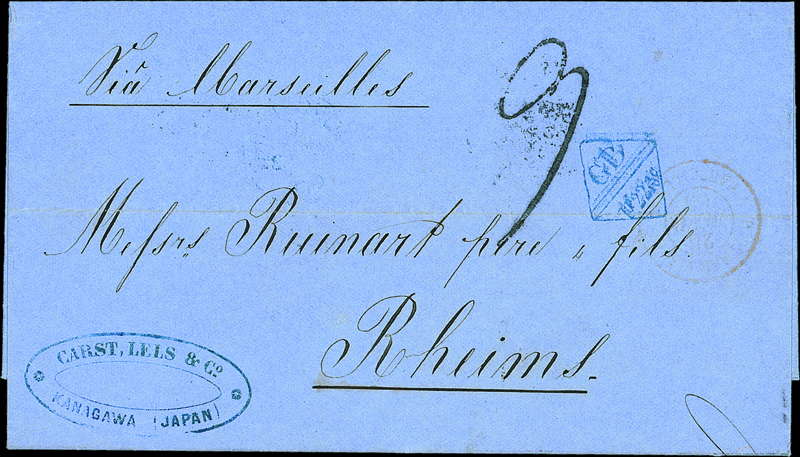 Via Marseilles
9
GB
Messrs Ruinart père & fils.
Rheims.
CARST, LELS & Co.
KANAGAWA (JAPAN)